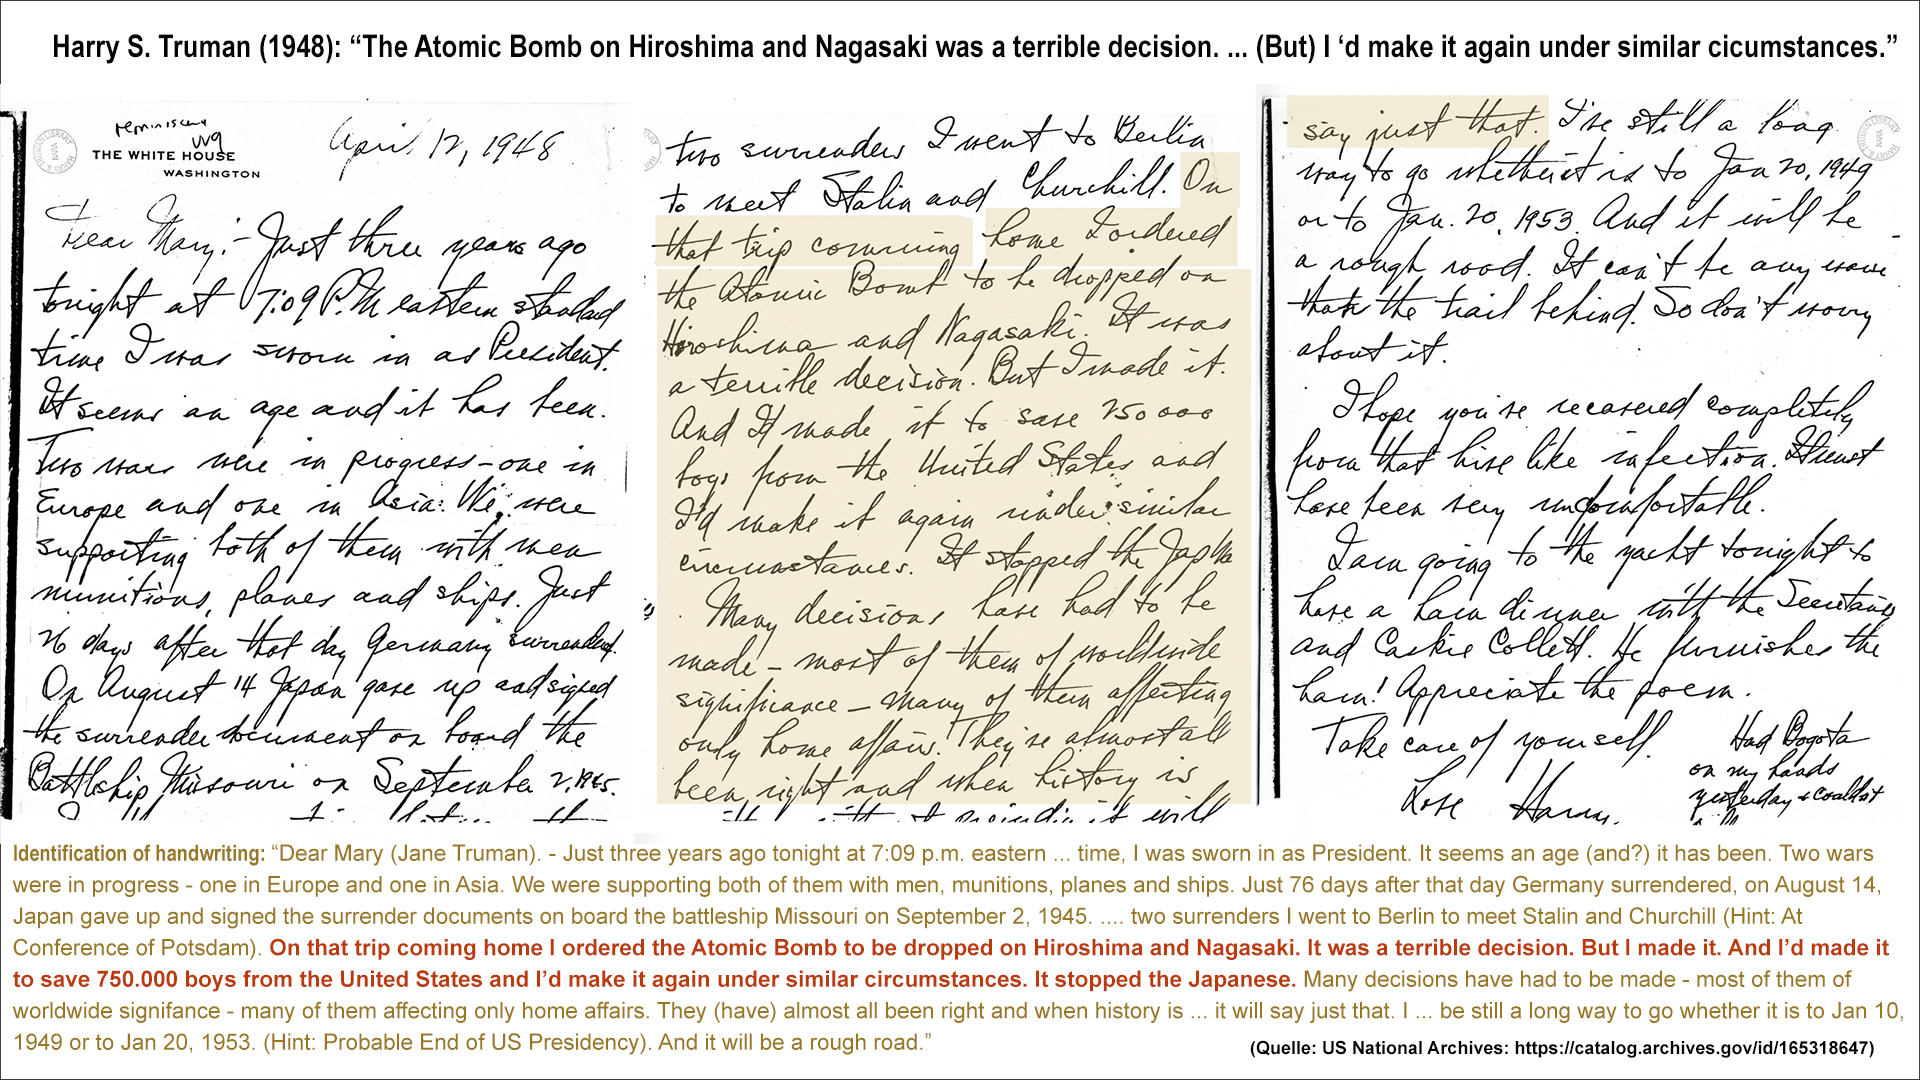 Harry S. Truman (1948): “The Atomic Bomb on Hiroshima and Nagasaki was a terrible decision. ... (But) I ‘d make it again under similar cicumstances.”
THE WHITE HOUSE
WASHINGTON
April 12, 1948
Dear Mary:- Just three years ago
tonight at 7:09 P.M eastern standard
time I was sworn in as President.
It seems an age and it has been.
Two wars were in progress - one in
Europe and one in Asia. We were
supporting both of them with men
munitions, planes and ships. Just
26 days after that day Germany surrendered.
On August 14 Japan gave up and signed
the surrender document on board the
Battleship Missouri on September 2, 1945.
two surrenders I went to Berlin
to meet Stalin and Churchill. On
that trip comming home I ordered
the Atomic Bomb to be dropped on
Hiroshima and Nagasaki. It was
a terrible decision. But I made it.
And I made it to save 250 000
boys from the United States and
I'd make it again under similar
circumstances. It stopped the Jap
Many decisions have had to be
made - most of them of worldwide
significance - many of them affecting
only home affairs. They're almost all
been right and when history is
it will
say just that. I've still a long
way to go whether it is to Jan 20, 1949
or to Jan. 20, 1953. And it will be
a rough road. It can't be any worse
than the trail behind. So don't worry
about it.
I hope you've recovered completely
from that hive like infection. It must
have been very uncomfortable.
I am going to the yacht tonight to
have a ham dinner with the Secretary
and Caskie Collett. He furnishes the
ham! Appreciate the poem.
Take care of yourself.
Love Harry.
Had Bogota
on my hands
yesterday &
Identification of handwriting: “Dear Mary (Jane Truman). - Just three years ago tonight at 7:09 p.m. eastern ... time, I was sworn in as President. It seems an age (and?) it has been. Two wars
were in progress - one in Europe and one in Asia. We were supporting both of them with men, munitions, planes and ships. Just 76 days after that day Germany surrendered, on August 14,
Japan gave up and signed the surrender documents on board the battleship Missouri on September 2, 1945. .... two surrenders I went to Berlin to meet Stalin and Churchill (Hint: At
Conference of Potsdam). On that trip coming home I ordered the Atomic Bomb to be dropped on Hiroshima and Nagasaki. It was a terrible decision. But I made it. And I’d made it
to save 750.000 boys from the United States and I’d make it again under similar circumstances. It stopped the Japanese. Many decisions have had to be made - most of them of
worldwide signifance - many of them affecting only home affairs. They (have) almost all been right and when history is ... it will say just that. I ... be still a long way to go whether it is to Jan 10,
1949 or to Jan 20, 1953. (Hint: Probable End of US Presidency). And it will be a rough road.”
(Quelle: US National Archives: https://catalog.archives.gov/id/165318647)